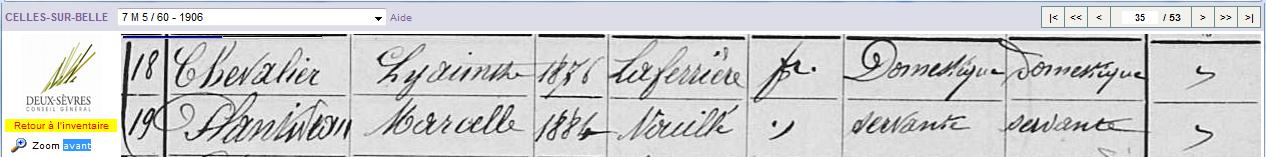 CELLES-SUR-BELLE 7 M 5 / 60 - 1906 Aide |< << < 35 / 53 > >> >|
18 Chevalier Hyacinthe 1876 Laferrière fr. Domestique Domestique "
DEUX-SÈVRES
CONSEIL GÉNÉRAL
Retour à l'inventaire
19 Marcelle 1884 Nouillé " servante servante "
Zoom avant